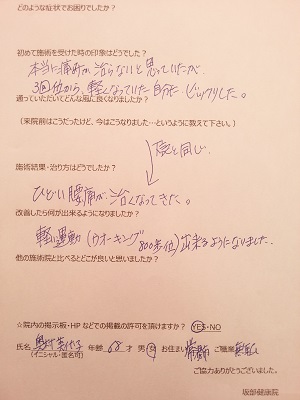 どのような症状でお困りでしたか？
初めて施術を受けた時の印象はどうでしたか？
本当に痛みが治らないと思っていたが、
3回位から、軽くなっていた自分にビックリした。
通っていただいてどんな風に良くなりましたか？
（来院前はこうだったけど、今はこうなりました…というように教えて下さい。）
施術結果・治り方はどうでしたか？
ひどい腰痛が、治くなってきた。
改善したら何が出来るようになりましたか？
軽い運動（ウオーキング800歩位）出来るようになりました。
他の施術院と比べるとどこが良いと思いましたか？
☆院内の掲示板・HPなどでの掲載の許可を頂けますか？ YES・NO
氏名 年齢 68 才 男・女 お住まい ご職業
（イニシャル・匿名可）
ご協力ありがとうございました。
坂部健康院